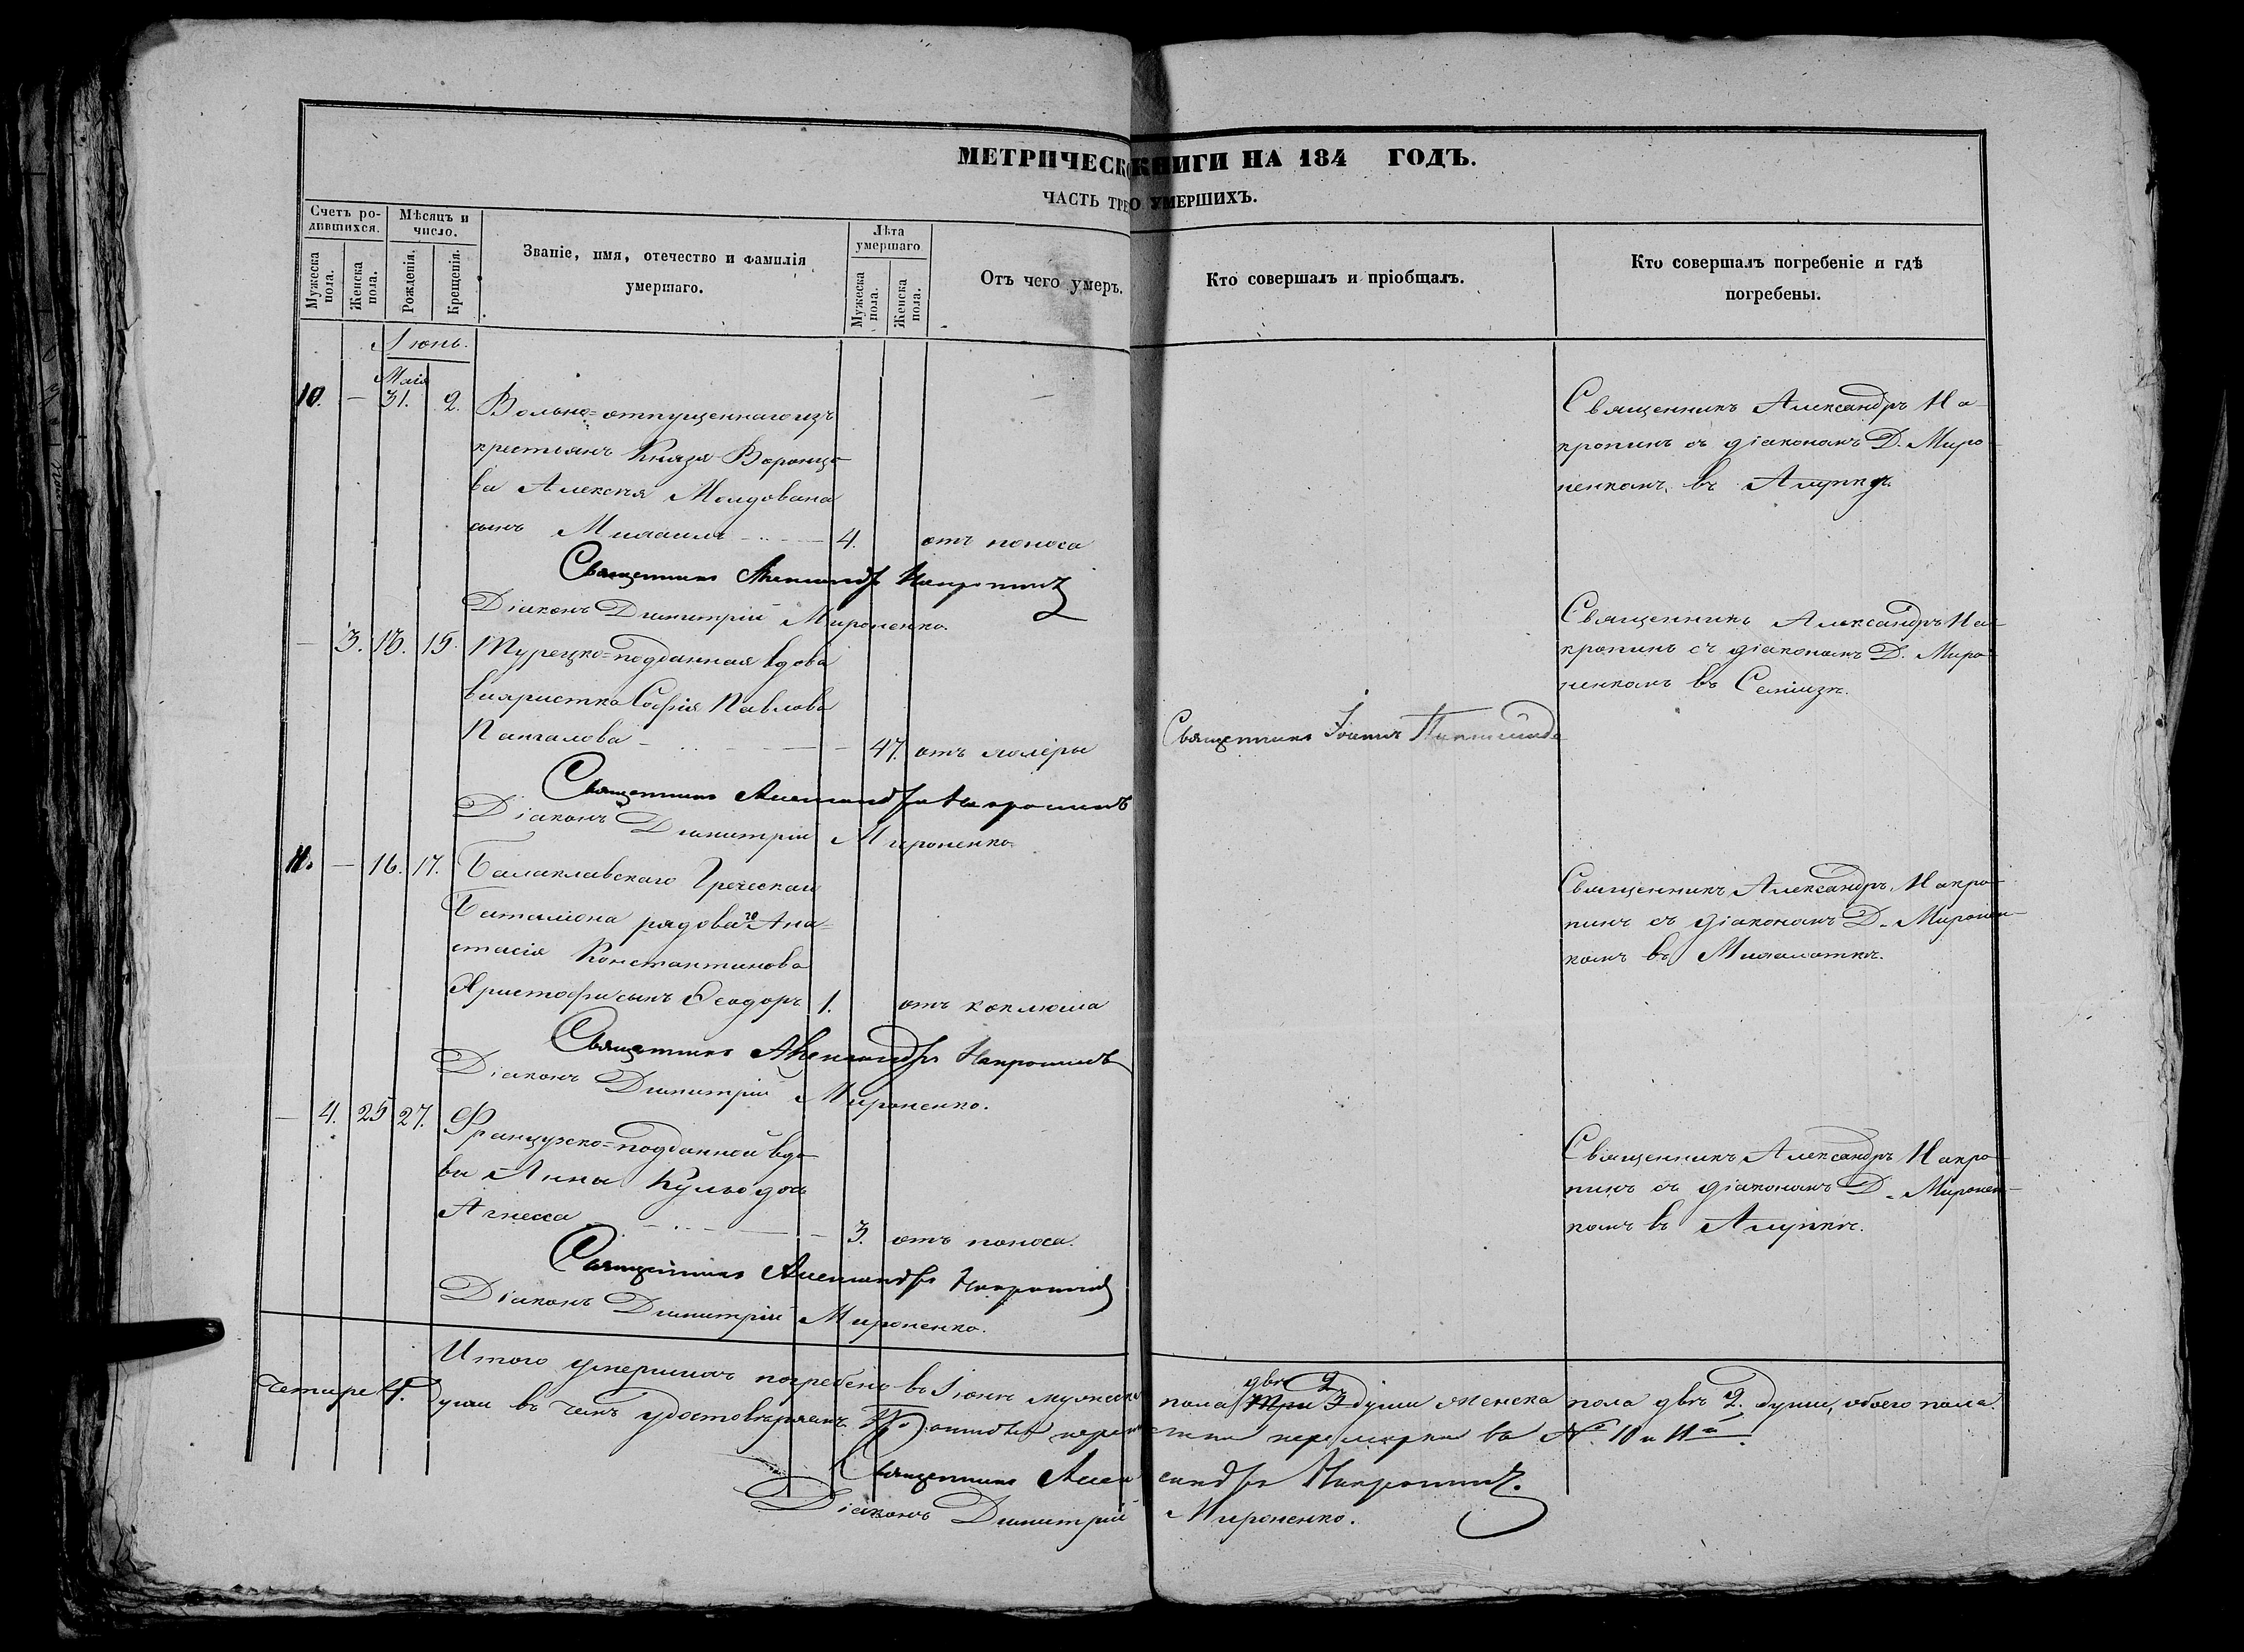 МЕТРИЧЕСКО КНИГИ НА 184 ГОДЪ.
ЧАСТЬ ТРЕ О УМЕРШИХЪ.
Счетъ ро-
дившихся.
Мѣсяцъ и
число.
Мужеска
пола.
Женска
пола.
Рожденія.
Крещенія.
Званіе, имя, отечество и фамилія
умершаго.
Лѣта
умершаго
Мужеска
пола.
Женска
пола.
Отъ чего умеръ.
Кто совершалъ и пріобщалъ.
Кто совершалъ погребеніе и гдѣ
погребены.
Іюнь.
Маія
10. — 31. 2. Вольно=отпущеннаго изъ
крестьянъ Князя Воронцо
ва Алексѣя Молдована
сынъ Михаилъ 4. отъ поноса
Священникъ Александръ Накропинъ
Діаконъ Димитрій Мироненко.
Священникъ Александръ На-
кропинъ съ діакономъ Д. Миро-
ненкомъ, въ Алупкѣ.
— 3. 13. 15. Турецко=подданная вдова
Софія Павлова
47. отъ холеры
Священникъ Іоаннъ
Священникъ Александръ Накропинъ
Діаконъ Димитрій Мироненко.
Священникъ Александръ На-
кропинъ съ діакономъ Д. Миро-
ненкомъ въ Симеизѣ.
11. — 16. 17. Балаклавскаго Греческаго
Баталіона рядоваго Ана=
стасія Константинова
Христофи сынъ Ѳеодоръ 1. отъ коклюша
Священникъ Александръ Накропинъ
Діаконъ Димитрій Мироненко.
Священникъ Александръ Накро-
пинъ съ діакономъ Д. Миронен-
комъ въ Мисхоткѣ.
— 4. 25 27. Французско=подданной вдо
вы Анны дочь
Агнесса 3. отъ поноса.
Священникъ Александръ Накропинъ
Діаконъ Димитрій Мироненко.
Священникъ Александръ Накро-
пинъ съ діакономъ Д. Миронен-
комъ въ Алупкѣ.
Итого умершихъ погребено въ Іюнѣ мужеска пола двѣ 2 три 3 души женска пола двѣ 2. души, обоего пола.
четыре 4. души въ чемъ удостовѣряемъ. въ № 10 и 11
Священникъ Александръ Накропинъ.
Діаконъ Димитрій Мироненко.